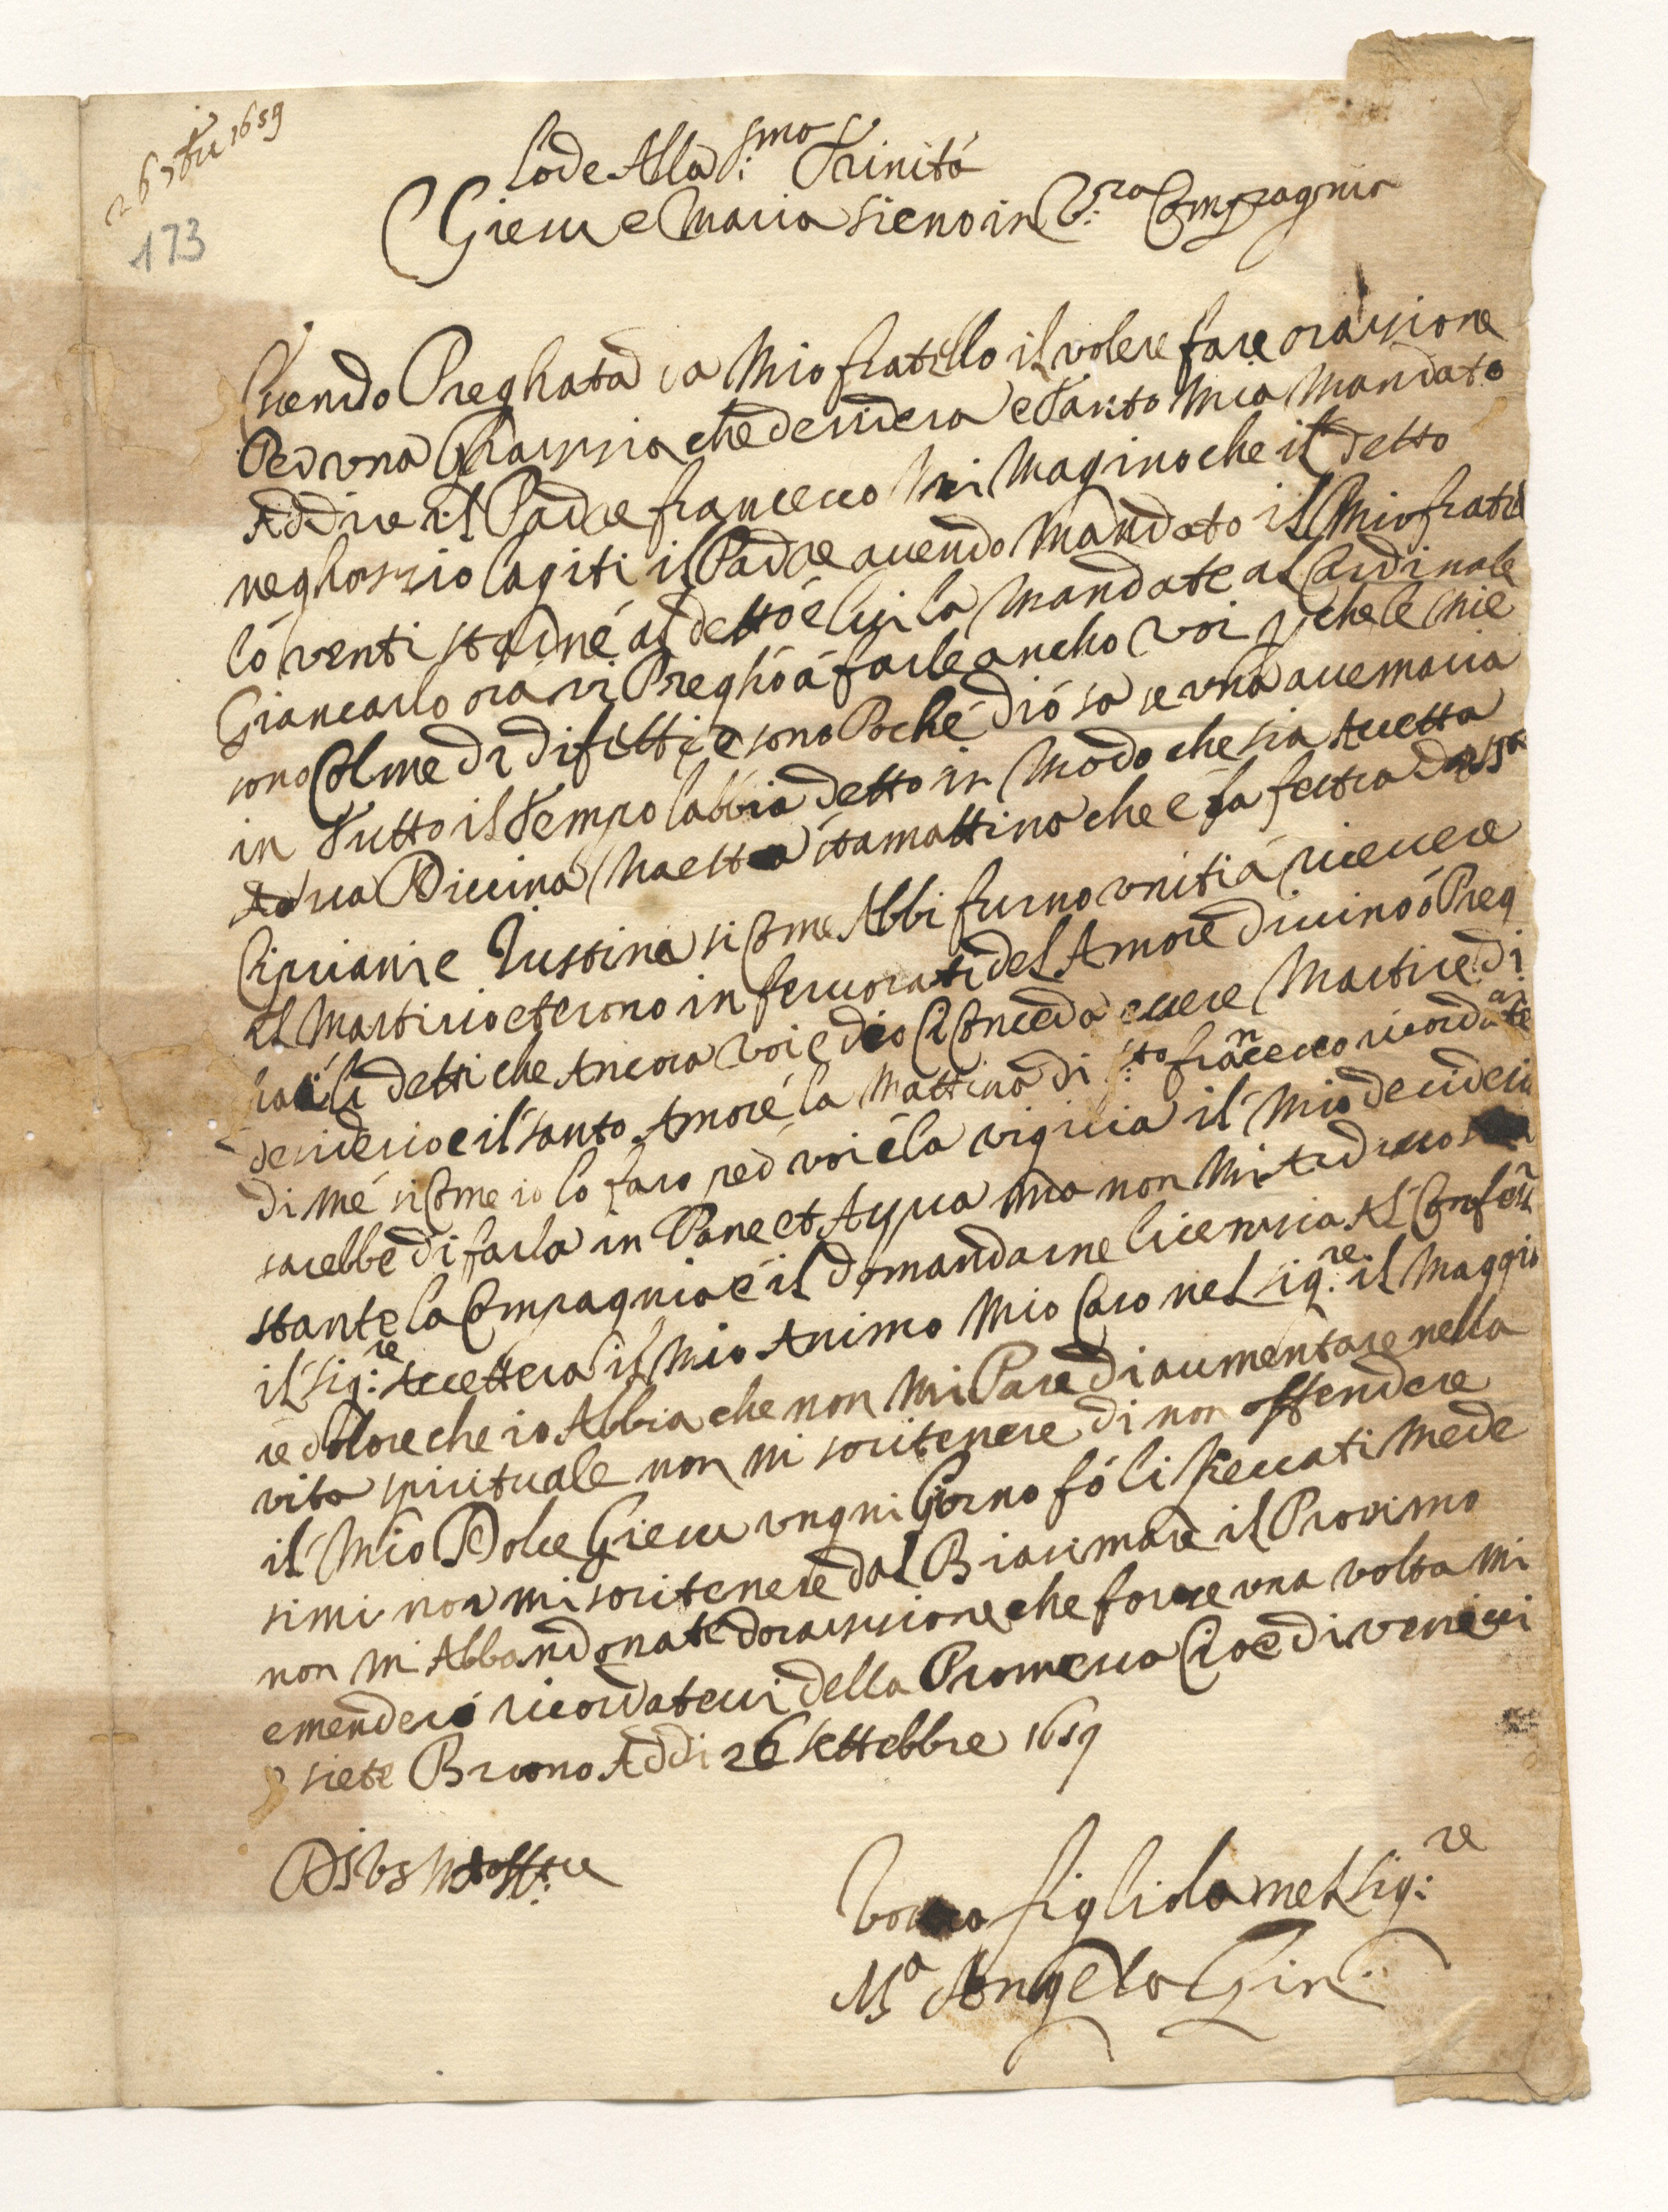 26 7bre 1659
173
Lode Alla S:ma Trinitá
Giesu e Maria sieno in V:ra Compagnia
siendo Preghata da Mio fratello il volere fare orassione
Per una Ghrassia che desidera e Tanto Mia Mandato
Addire il Padre francesco Mi Magino che il detto
neghossio lagiti il Padre avendo Mandato il Mio fratel
ló venti starne al detto é lui la Mandate al Cardinale
Giancarlo ora vi Preghó á farle ancho voi p che le Mie
sono Colme di difetti e sono Poche dió sa se una avemaria
in Tutto il Tempo labbia detto in Modo che sia Accetta
Ad sua Divina Maestá stamattina che é la festa de SSti
Cipriani e Iustina si Come Abbi furno uniti á ricevere
il Martirio et erono in fervorati del Amore divino ó Preg
hati li detti che Ancora voi e dio Ci Conceda essere Martire di
desiderio e il santo Amore la Mattina di S:to francesco ricordate
di Mé si Come io lo faro per voi é la vigilia il Mio desideri
sarebbe di farla in Pane et Acqua Ma non Mi Ardisco
stante la Compagnia é il domandarne licensia Al Confess
il Sig:re Accettera il Mio Animo Mio Caro nel Sig:re il Maggio
re dolore che io Abbia che non Mi Pare di aumentare nella
vita spirituale non Mi so ritenere di non offendere
il Mio Dolce Giesu ungni Giorno fó li Peccati Mede
simi non mi so ritenere dal Biasimare il Prosimo
non Mi Abbandonate dorassione che forse una volta Mi
emenderó ricordatevi della Promessa Cioé di venirci
siete Buono Addi 26 Settebbre 1659
Vostra figliola nel Sig:re
Ma Angela Gin: